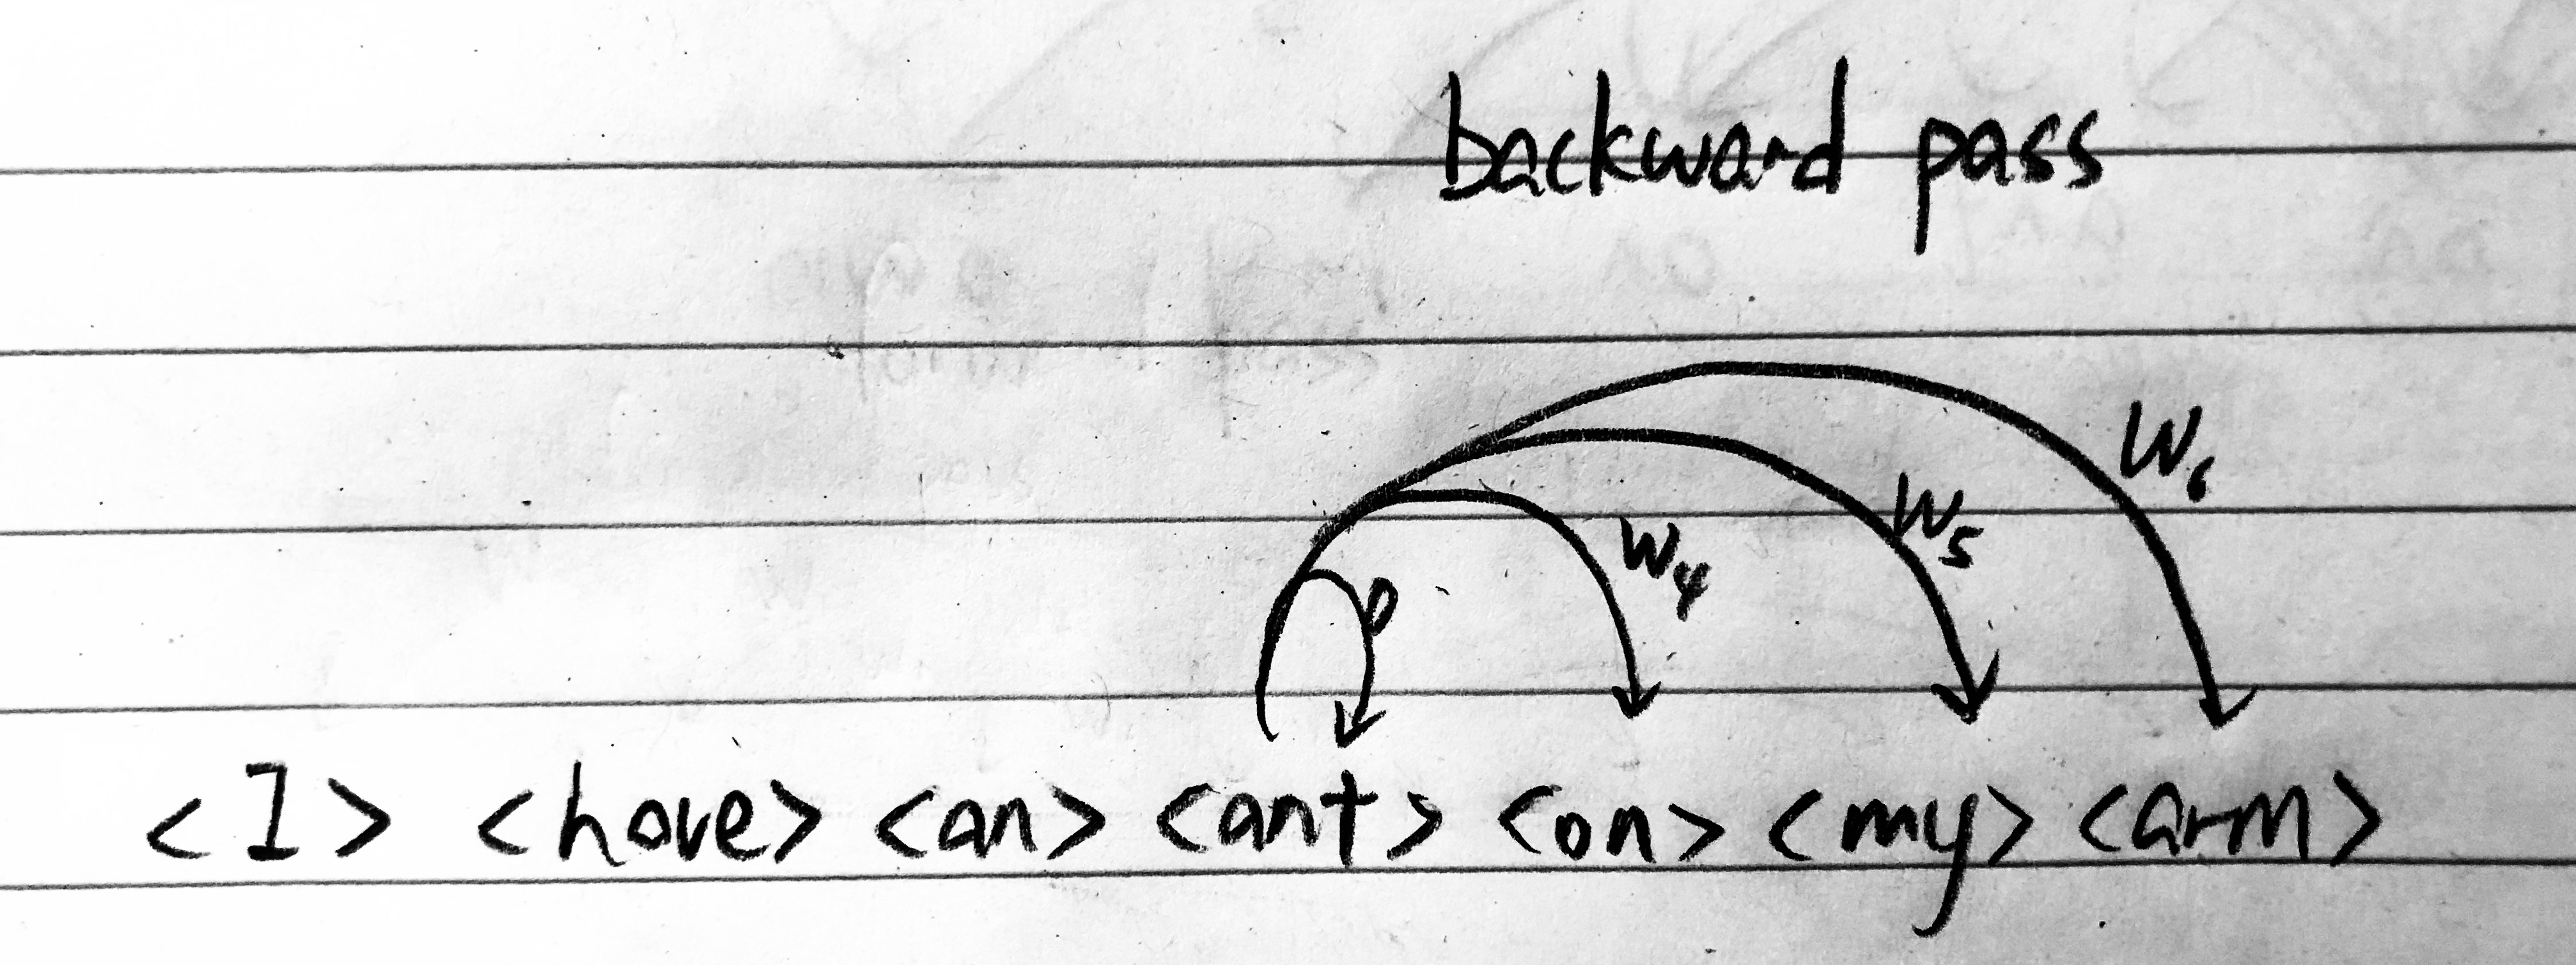 backward pass
W₆
W₅
W₄
0
<I> <have> <an> <ant> <on> <my> <arm>